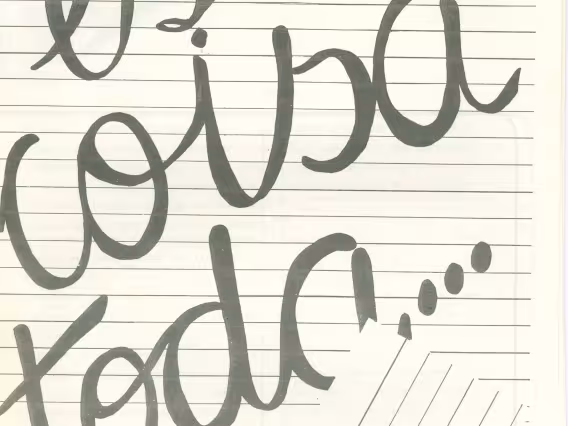 coisa
toda....